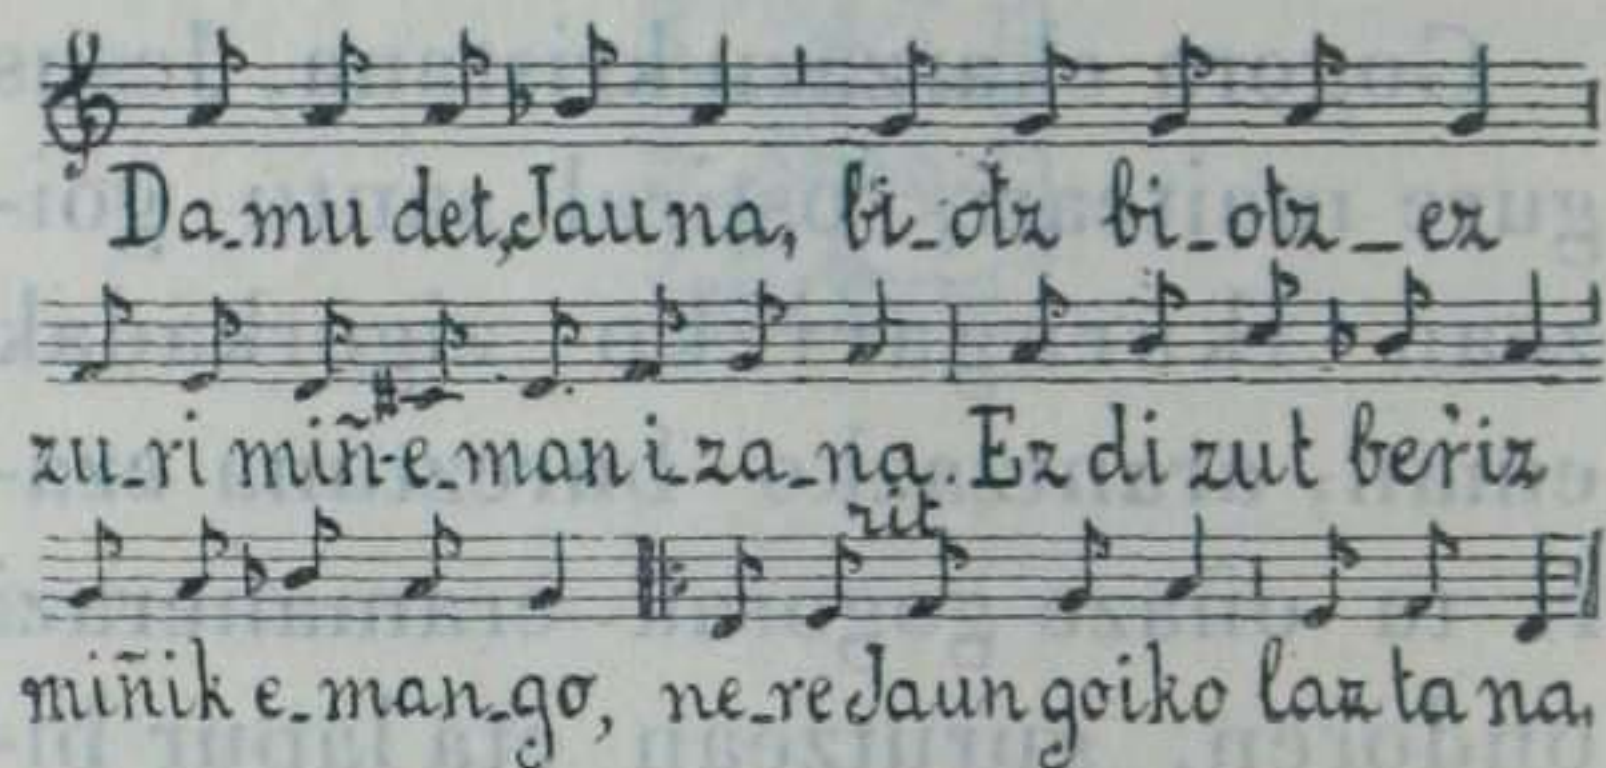 Da-mu det, Jauna, bi-otz bi-otz-ez
zu-ri miñ-e-man i-za-na. Ez di zut beŕiz
rit
miñik e-man-go, ne-re Jaungoiko laztana.